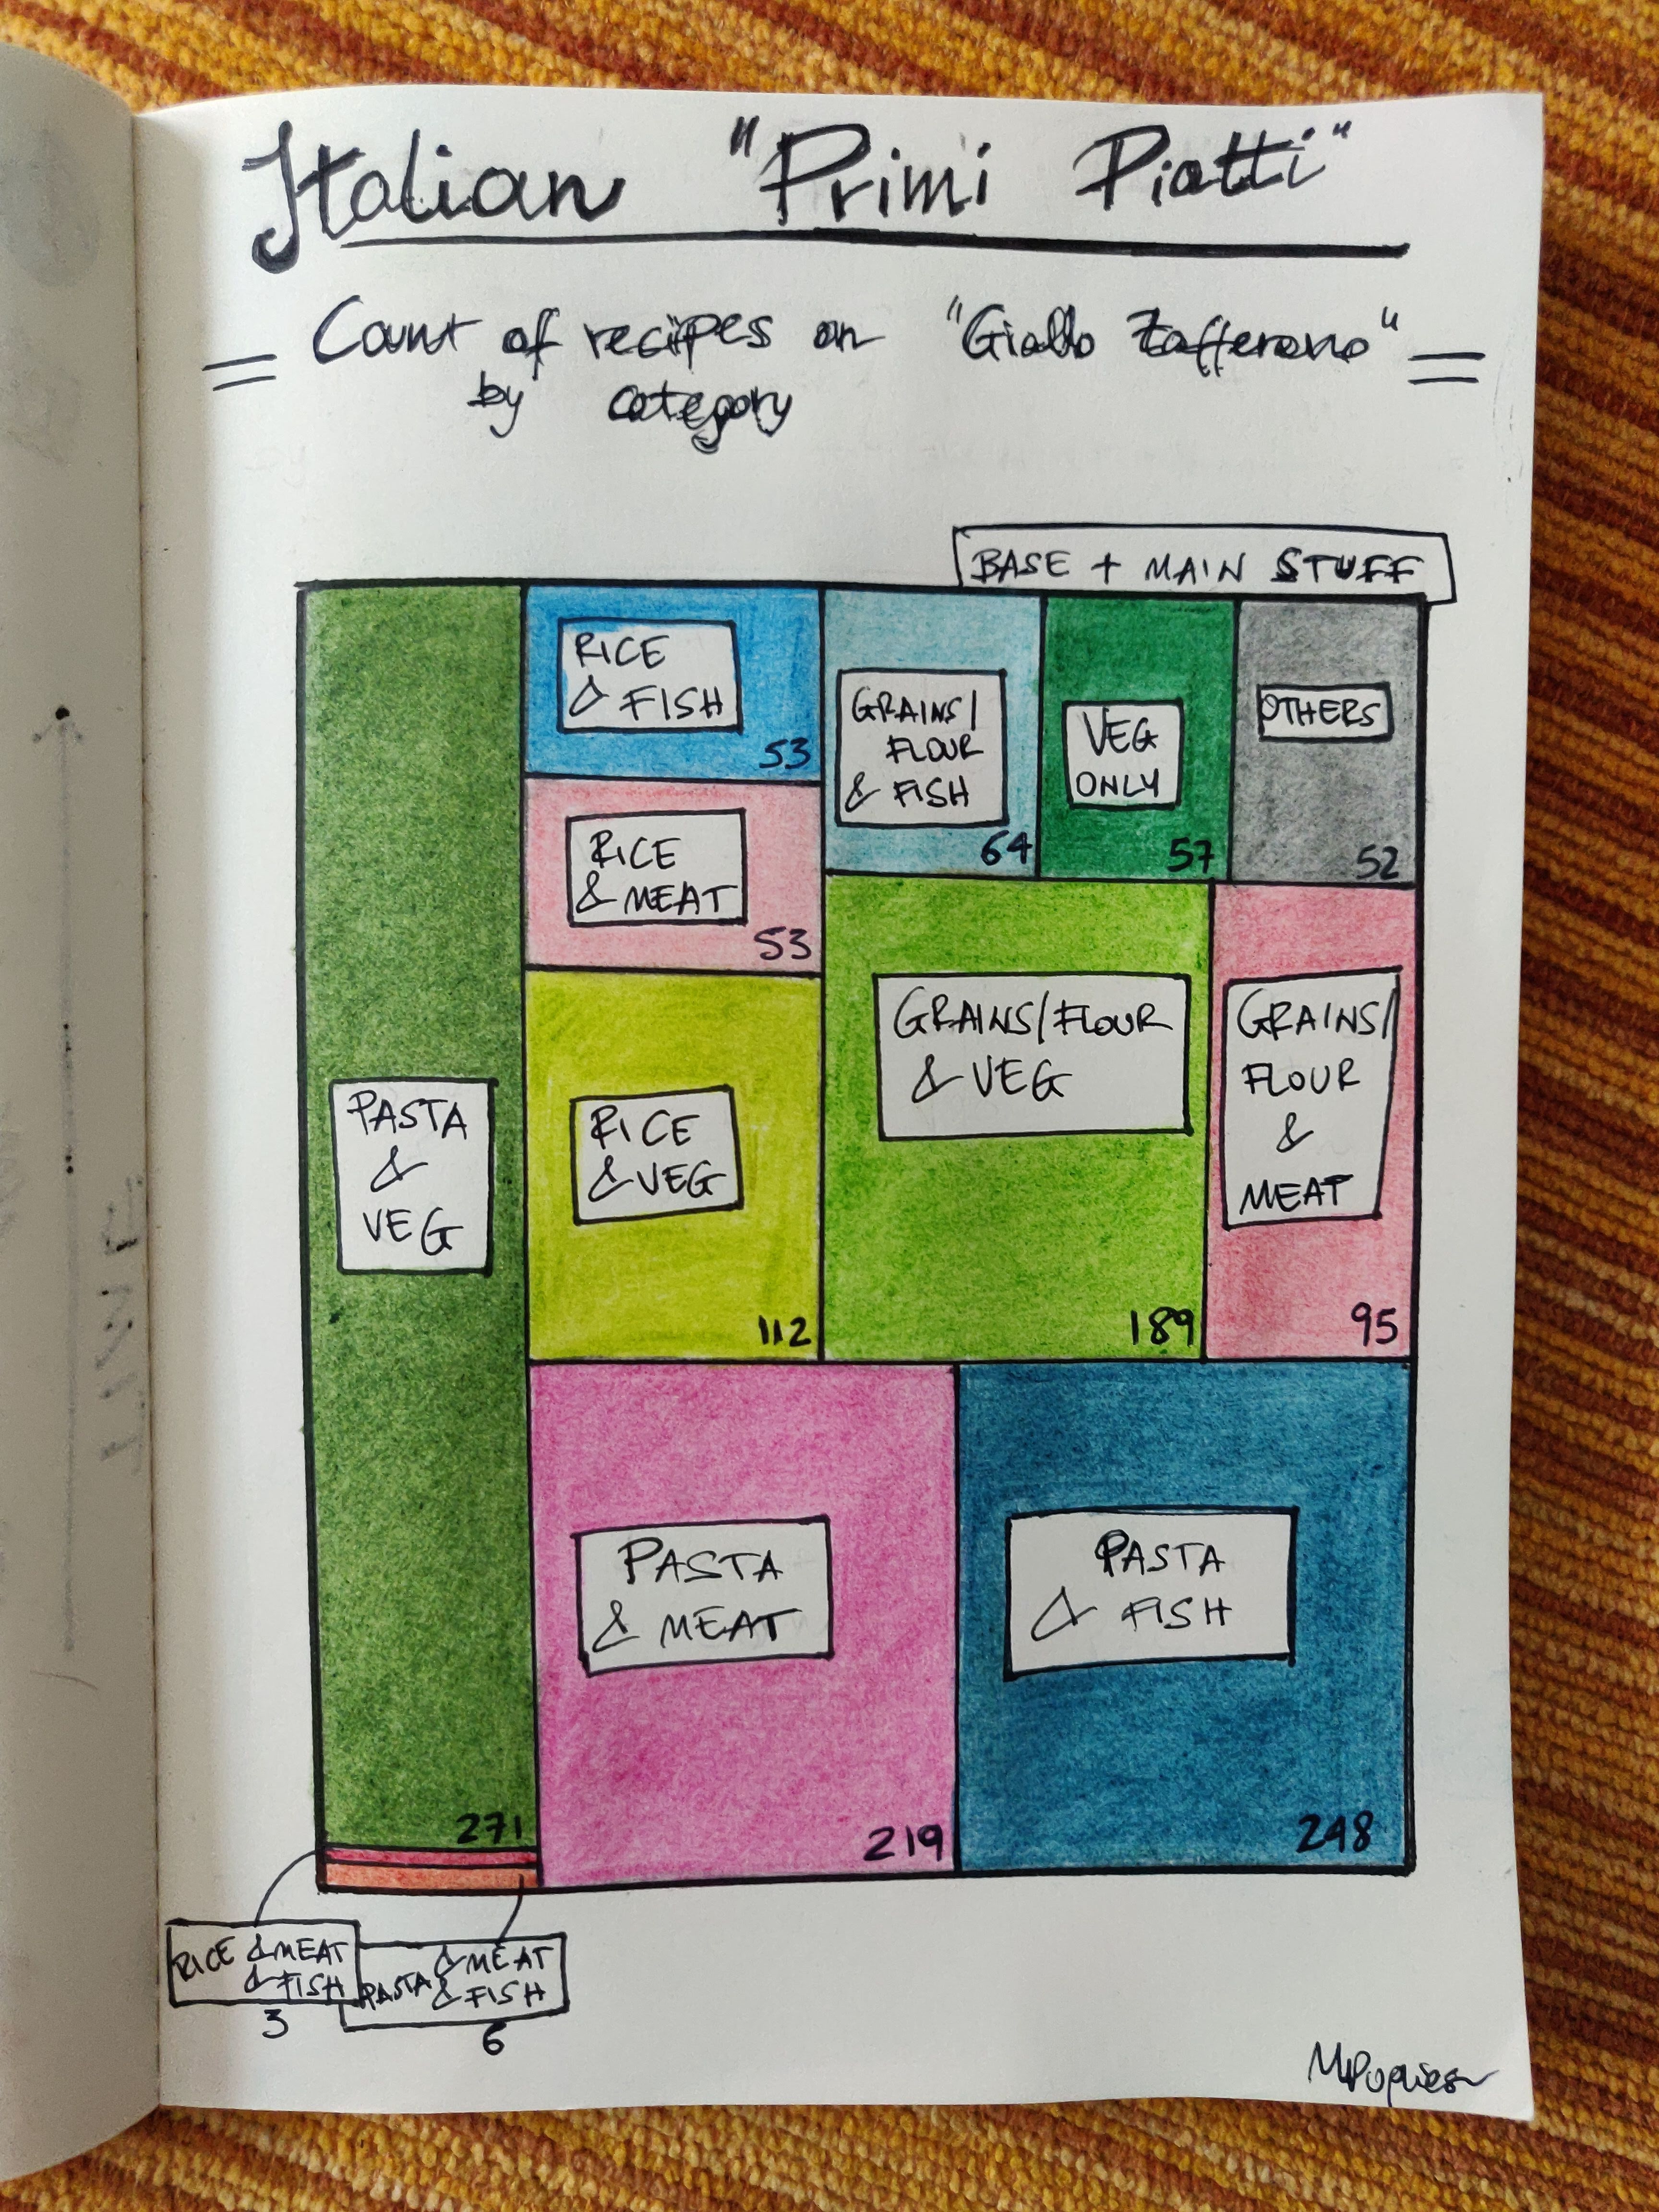 Italian "Primi Piatti"
Count of recipes on "Giallo Zafferano"
by category
BASE + MAIN STUFF
PASTA
&
VEG
271
RICE
& FISH
53
RICE
& MEAT
53
RICE
& VEG
112
GRAINS/
FLOUR
& FISH
64
VEG
ONLY
57
OTHERS
52
GRAINS/FLOUR
& VEG
189
GRAINS/
FLOUR
&
MEAT
95
PASTA
& MEAT
219
PASTA
& FISH
248
RICE & MEAT
& FISH
3
PASTA & MEAT
& FISH
6